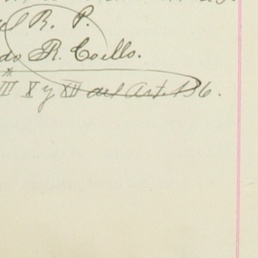 R. P.
do R. Coello.
III X y XII del Art. 136.